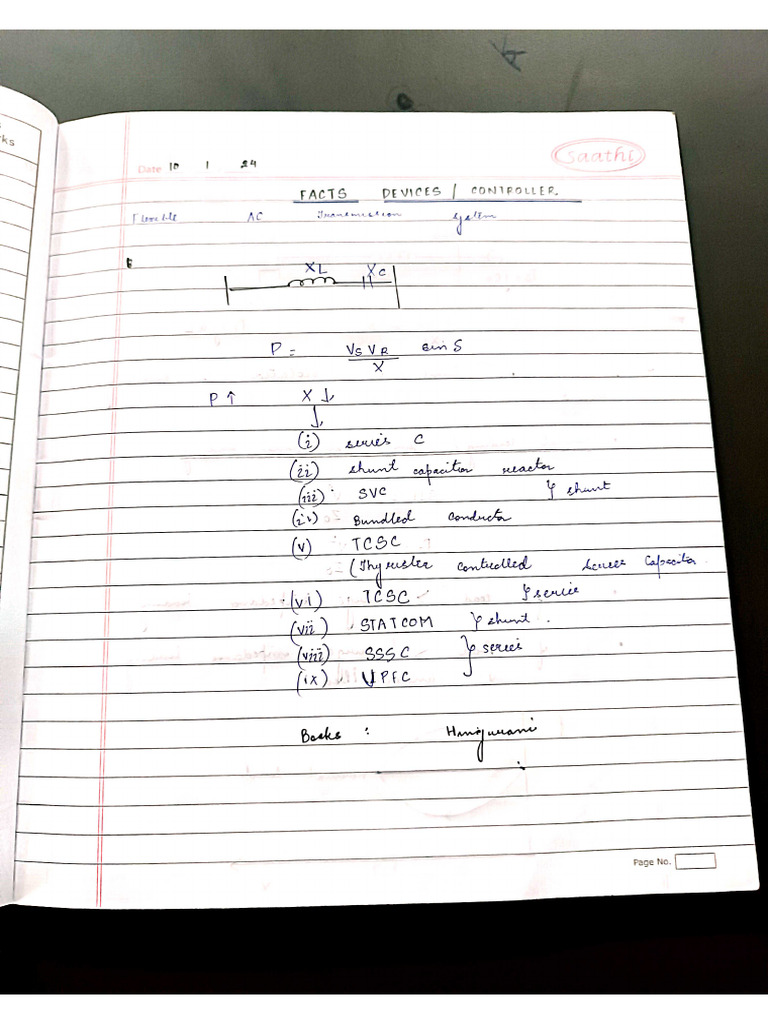 rks
Date 10 1 24
saathi
FACTS DEVICES / CONTROLLER.
Flexible AC Transmission System
XL XC
P = VS VR / X sin δ
P ↑ X ↓
↓
(i) series C
(ii) shunt capacitor reactor
(iii) SVC } shunt
(iv) Bundled Conductor
(v) TCSC
(Thyrister controlled Series Capacitor
(vi) TCSC } series
(vii) STATCOM } shunt .
(viii) SSSC } series
(ix) UPFC
Books : Hingurani
Page No.